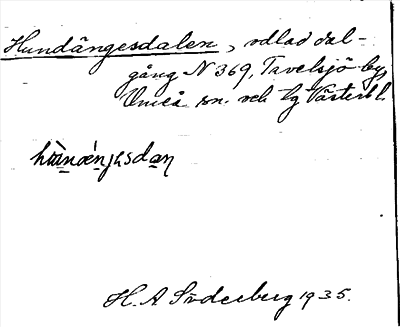 Hundängesdalen, odlad dal-
gång N 369, Tavelsjö by,
Umeå sn. och lg Västerb l.
H. A Söderberg 1935.